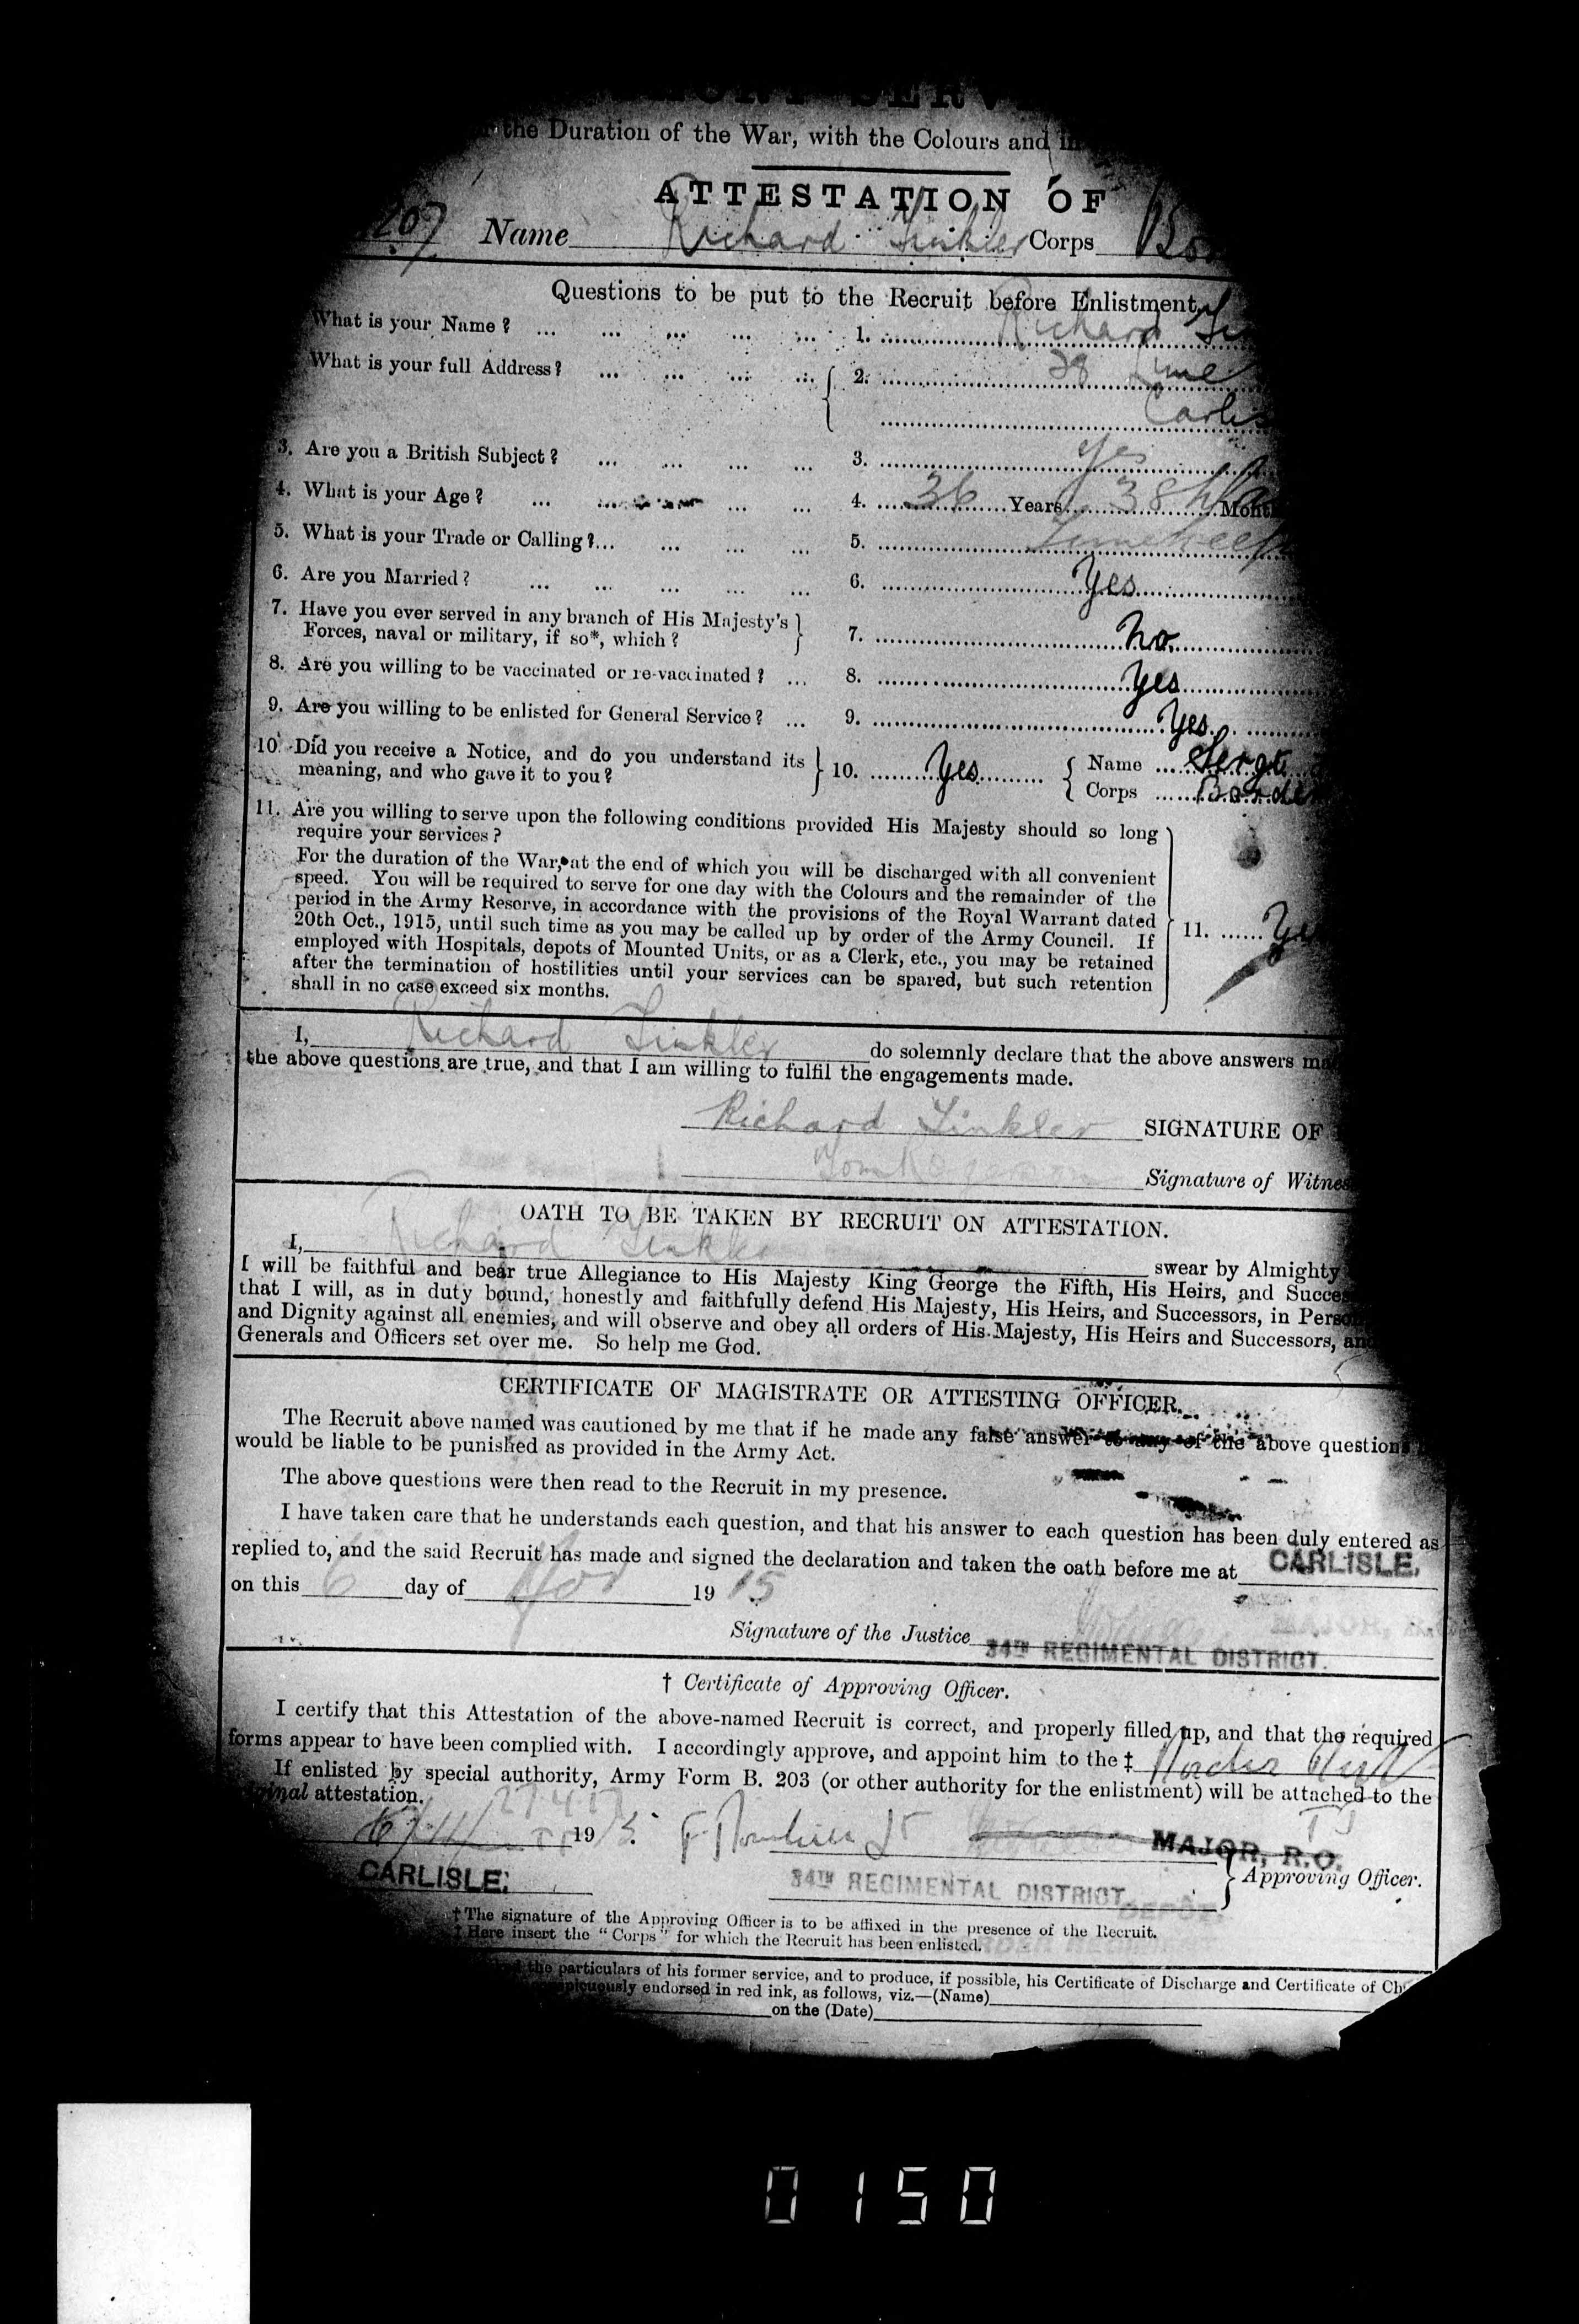 the Duration of the War, with the Colours and in
ATTESTATION OF
207 Name Richard Tinkler Corps
Questions to be put to the Recruit before Enlistment.
What is your Name? ... ... ... ... ... 1. Richard
What is your full Address? ... ... ... ... 2. 28
3. Are you a British Subject? ... ... ... ... 3. Yes
4. What is your Age? ... ... ... ... 4. 36 Years 38 Months
5. What is your Trade or Calling?... ... ... ... 5. Timekeep
6. Are you Married? ... ... ... ... ... 6. Yes
7. Have you ever served in any branch of His Majesty's
Forces, naval or military, if so*, which? 7. No
8. Are you willing to be vaccinated or re-vaccinated? ... 8. Yes
9. Are you willing to be enlisted for General Service? ... 9. Yes
10. Did you receive a Notice, and do you understand its
meaning, and who gave it to you? 10. Yes { Name Sergt
Corps Border
11. Are you willing to serve upon the following conditions provided His Majesty should so long
require your services?
For the duration of the War, at the end of which you will be discharged with all convenient
speed. You will be required to serve for one day with the Colours and the remainder of the
period in the Army Reserve, in accordance with the provisions of the Royal Warrant dated
20th Oct., 1915, until such time as you may be called up by order of the Army Council. If
employed with Hospitals, depots of Mounted Units, or as a Clerk, etc., you may be retained
after the termination of hostilities until your services can be spared, but such retention
shall in no case exceed six months.
11. Ye
I, Richard Tinkler do solemnly declare that the above answers
the above questions are true, and that I am willing to fulfil the engagements made.
Richard Tinkler SIGNATURE OF
Signature of Witness
OATH TO BE TAKEN BY RECRUIT ON ATTESTATION.
I, Richard Tinkler swear by Almighty
I will be faithful and bear true Allegiance to His Majesty King George the Fifth, His Heirs, and Succes
that I will, as in duty bound, honestly and faithfully defend His Majesty, His Heirs, and Successors, in Person
and Dignity against all enemies, and will observe and obey all orders of His Majesty, His Heirs and Successors, and
Generals and Officers set over me. So help me God.
CERTIFICATE OF MAGISTRATE OR ATTESTING OFFICER.
The Recruit above named was cautioned by me that if he made any false answer to any of the above questions
would be liable to be punished as provided in the Army Act.
The above questions were then read to the Recruit in my presence.
I have taken care that he understands each question, and that his answer to each question has been duly entered as
replied to, and the said Recruit has made and signed the declaration and taken the oath before me at CARLISLE.
on this 6 day of Nov 1915
Signature of the Justice
34TH REGIMENTAL DISTRICT.
† Certificate of Approving Officer.
I certify that this Attestation of the above-named Recruit is correct, and properly filled up, and that the required
forms appear to have been complied with. I accordingly approve, and appoint him to the ‡ Border
If enlisted by special authority, Army Form B. 203 (or other authority for the enlistment) will be attached to the
attestation.
1915. MAJOR, R.O.
CARLISLE. 34TH REGIMENTAL DISTRICT. Approving Officer.
† The signature of the Approving Officer is to be affixed in the presence of the Recruit.
‡ Here insert the "Corps" for which the Recruit has been enlisted.
the particulars of his former service, and to produce, if possible, his Certificate of Discharge and Certificate of Ch
endorsed in red ink, as follows, viz.—(Name)
on the (Date)
0150